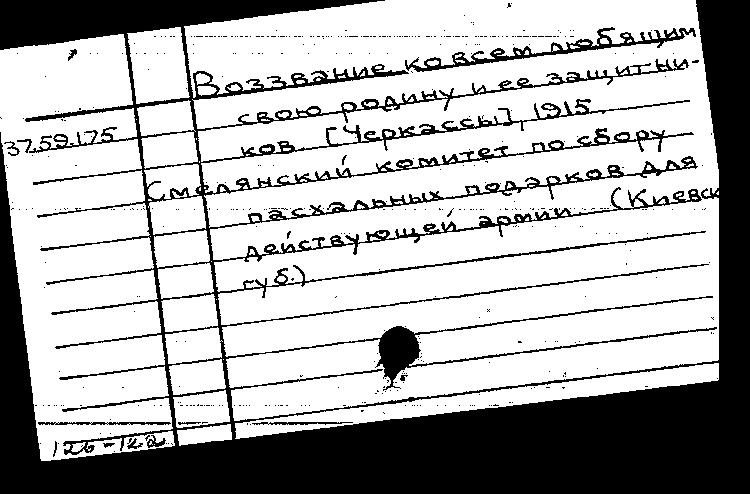 Воззвание ко всем любящим
свою родину и ее защитни-
37.59.175
ков. [Черкассы], 1915.
Смелянский комитет по сбору
пасхальных подарков для
действующей армии. (Киевск
губ.)